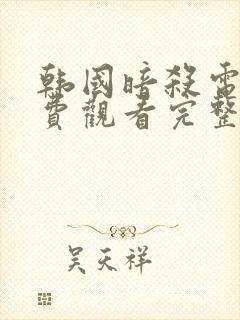 韩國暗殺電
費觀看完整
吴天祥